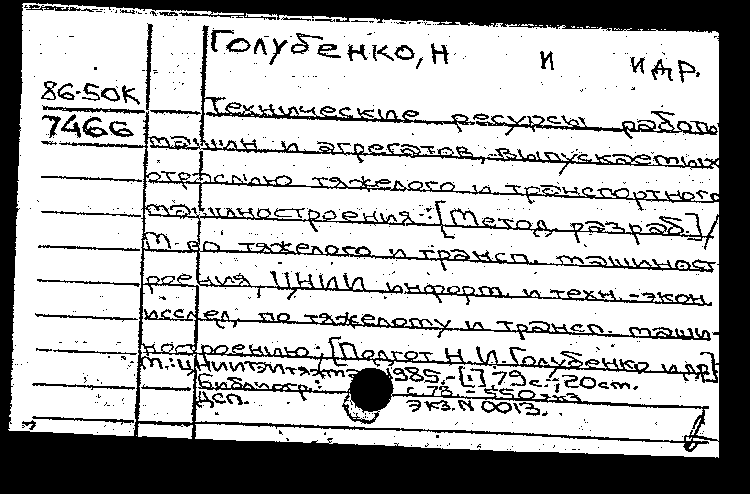 Голубенко, Н и и др.
86-50К
7466
Технические ресурсы работы
машин и агрегатов, выпускаемых
отраслью тяжелого и транспортного
машиностроения: [Метод. разраб.]/
М-во тяжелого и трансп. машиност
роения, ЦНИИ информ. и техн.-экон.
исслед. по тяжелому и трансп. маши-
ностроению; [Подгот. Н.И. Голубенко и др]
М.: ЦНИИТЭИтяжмаш 1985.-[1] 79 с.; 20 см.
Библиогр.: с 78. - 550 экз
ДСП. экз. N 0013.